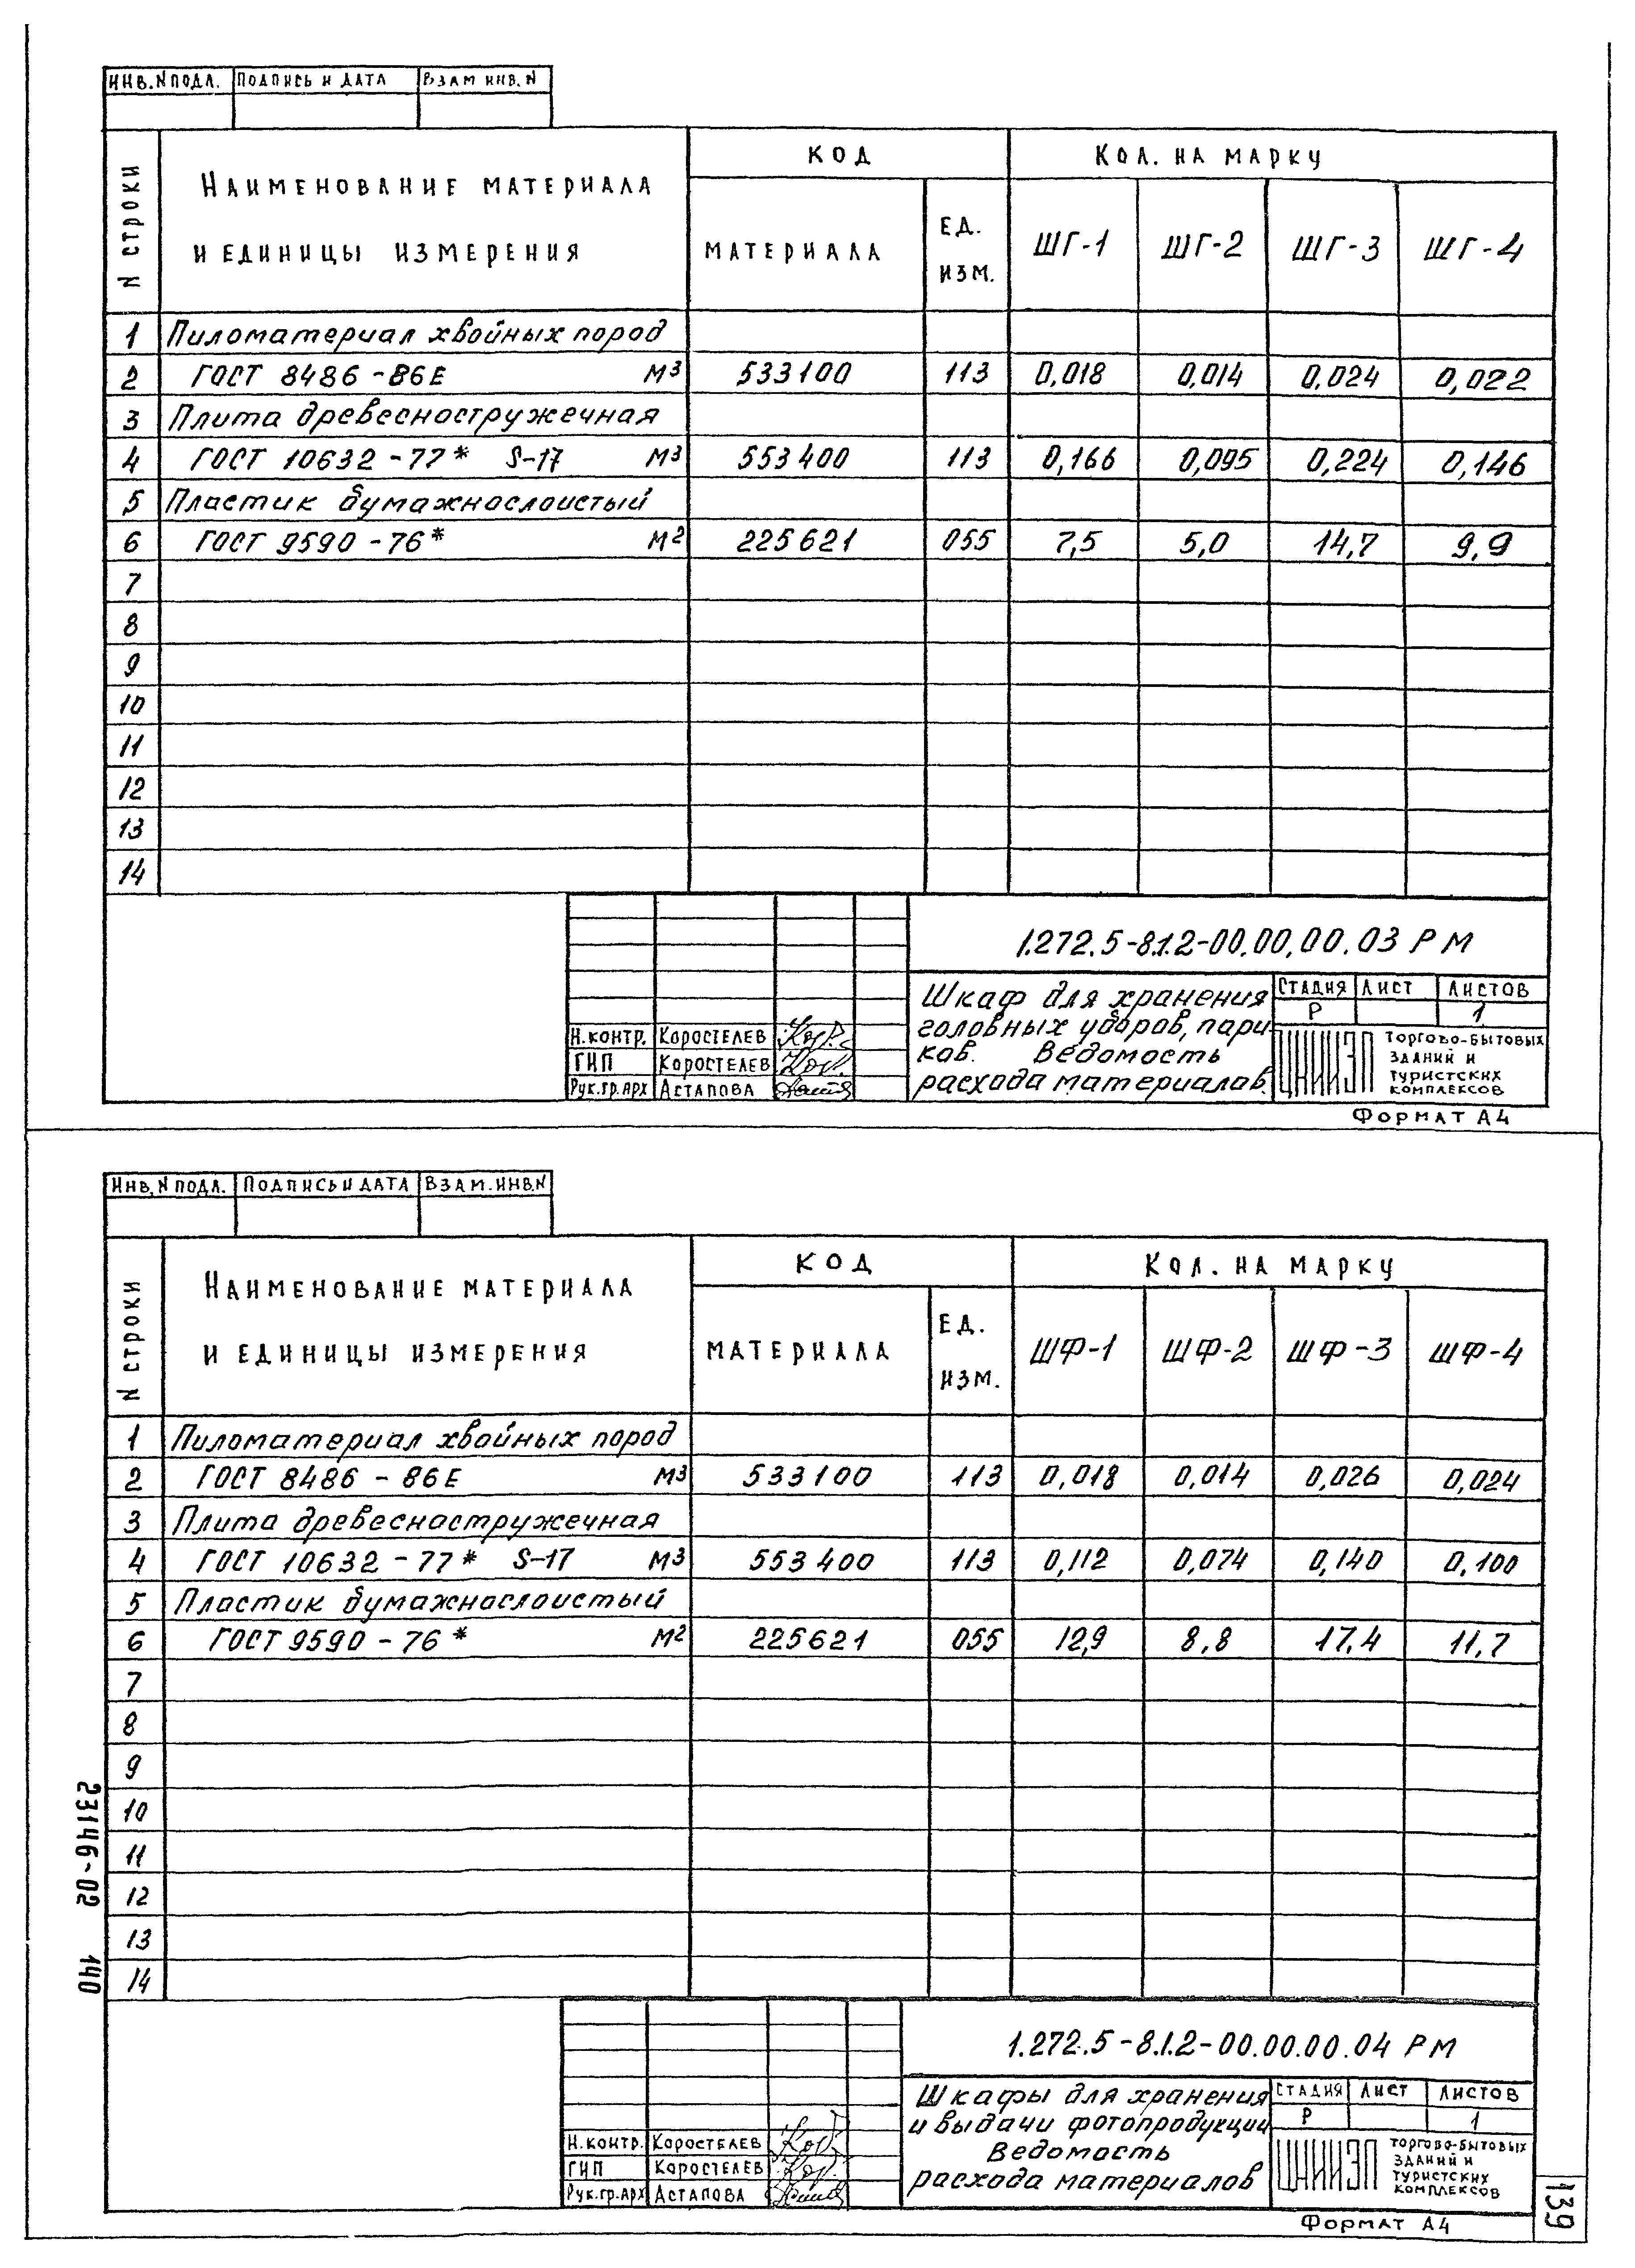 Инв.N подл. Подпись и дата Взам инв. N
N строки Наименование материала и единицы измерения Код Кол. на марку
материала ед. изм. ШГ-1 ШГ-2 ШГ-3 ШГ-4
1 Пиломатериал хвойных пород
2 ГОСТ 8486-86Е м3 533100 113 0,018 0,014 0,024 0,022
3 Плита древесностружечная
4 ГОСТ 10632-77* S-17 м3 553400 113 0,166 0,095 0,224 0,146
5 Пластик бумажнослоистый
6 ГОСТ 9590-76* м2 225621 055 7,5 5,0 14,7 9,9
7
8
9
10
11
12
13
14
1.272.5-8.1.2-00.00.00.03 РМ
Шкаф для хранения
головных уборов, пари-
ков. Ведомость
расхода материалов.
Стадия Лист Листов
Р 1
Н.контр. Коростелев
ГИП Коростелев
Рук.гр.арх Астапова
ЦНИИЭП торгово-бытовых
зданий и
туристских
комплексов
Формат А4
Инв. N подл. Подпись и дата Взам. инв. N
N строки Наименование материала и единицы измерения Код Кол. на марку
материала ед. изм. ШФ-1 ШФ-2 ШФ-3 ШФ-4
1 Пиломатериал хвойных пород
2 ГОСТ 8486-86Е м3 533100 113 0,018 0,014 0,026 0,024
3 Плита древесностружечная
4 ГОСТ 10632-77* S-17 м3 553400 113 0,112 0,074 0,140 0,100
5 Пластик бумажнослоистый
6 ГОСТ 9590-76* м2 225621 055 12,9 8,8 17,4 11,7
7
8
9
10
11
12
13
14
23146-02 140
1.272.5-8.1.2-00.00.00.04 РМ
Шкафы для хранения
и выдачи фотопродукции
Ведомость
расхода материалов
Стадия Лист Листов
Р 1
Н.контр. Коростелев
ГИП Коростелев
Рук.гр.арх Астапова
ЦНИИЭП торгово-бытовых
зданий и
туристских
комплексов
Формат А4
139